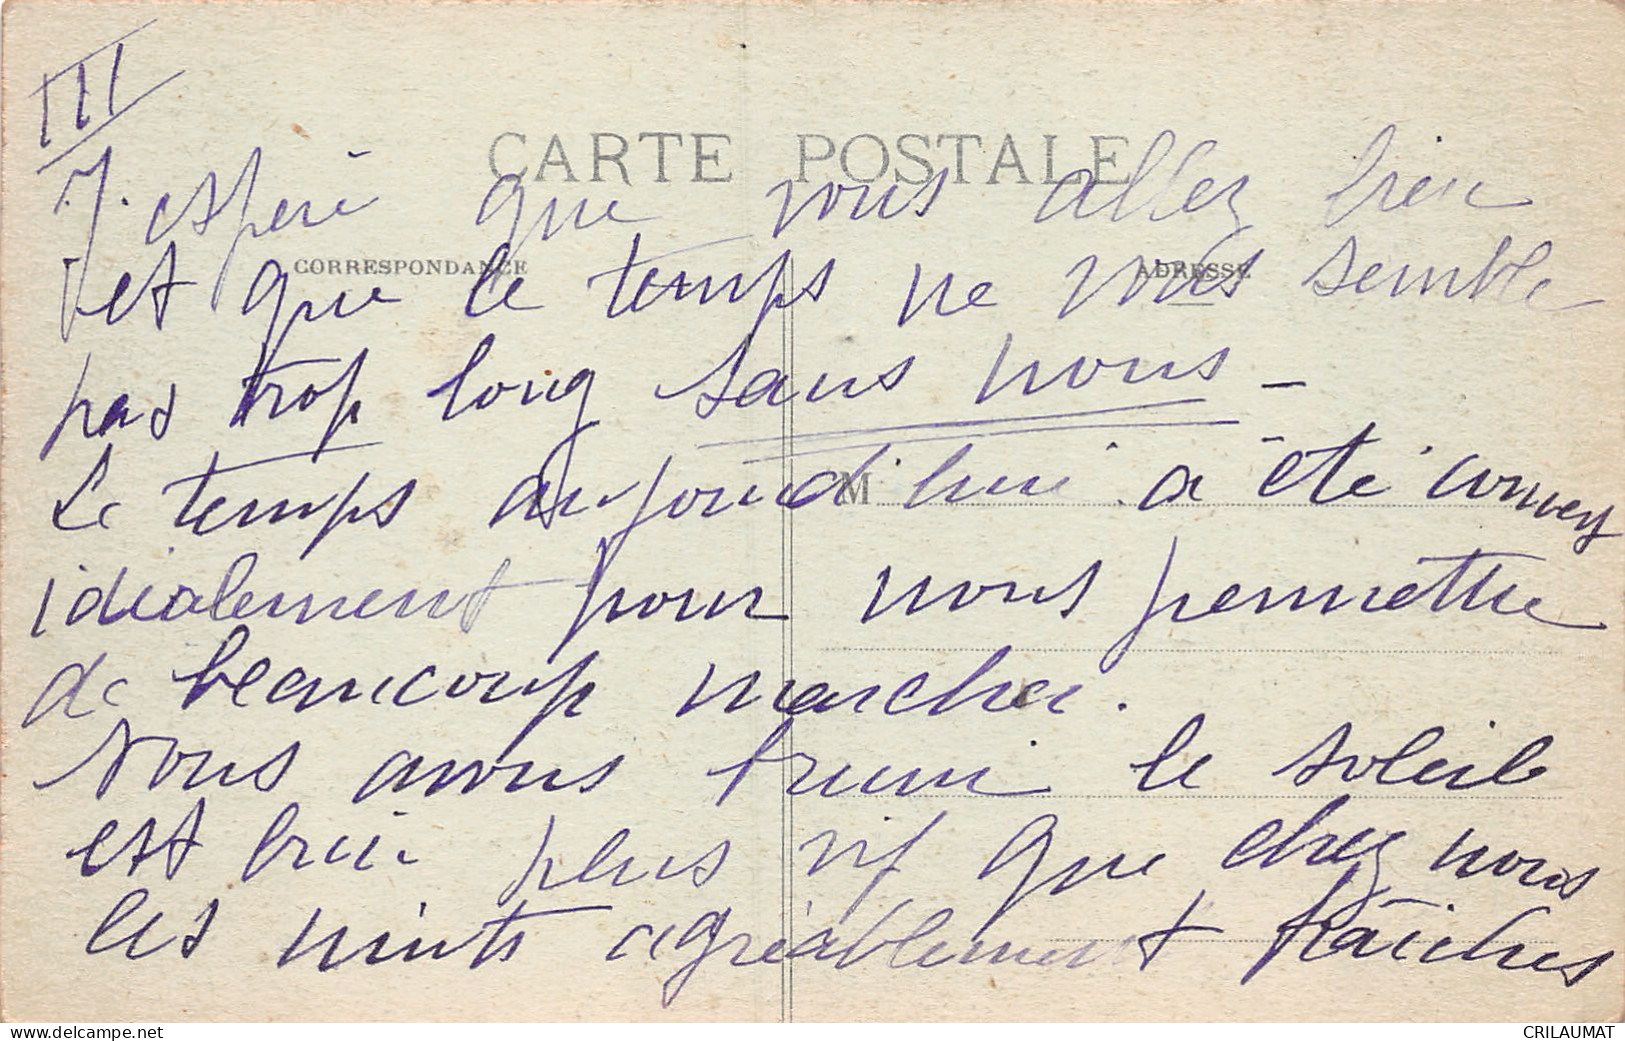 III
CARTE POSTALE
J'espère que vous allez bien
CORRESPONDANCE
ADRESSE
et que le temps ne vous semble
pas trop long sans nous -
Le temps aujourd'hui a été couvert
M
idéalement pour nous permettre
de beaucoup marcher.
Nous avons bruni le soleil
est bien plus vif que chez nous
les nuits agréablement fraîches
www.delcampe.net
CRILAUMAT